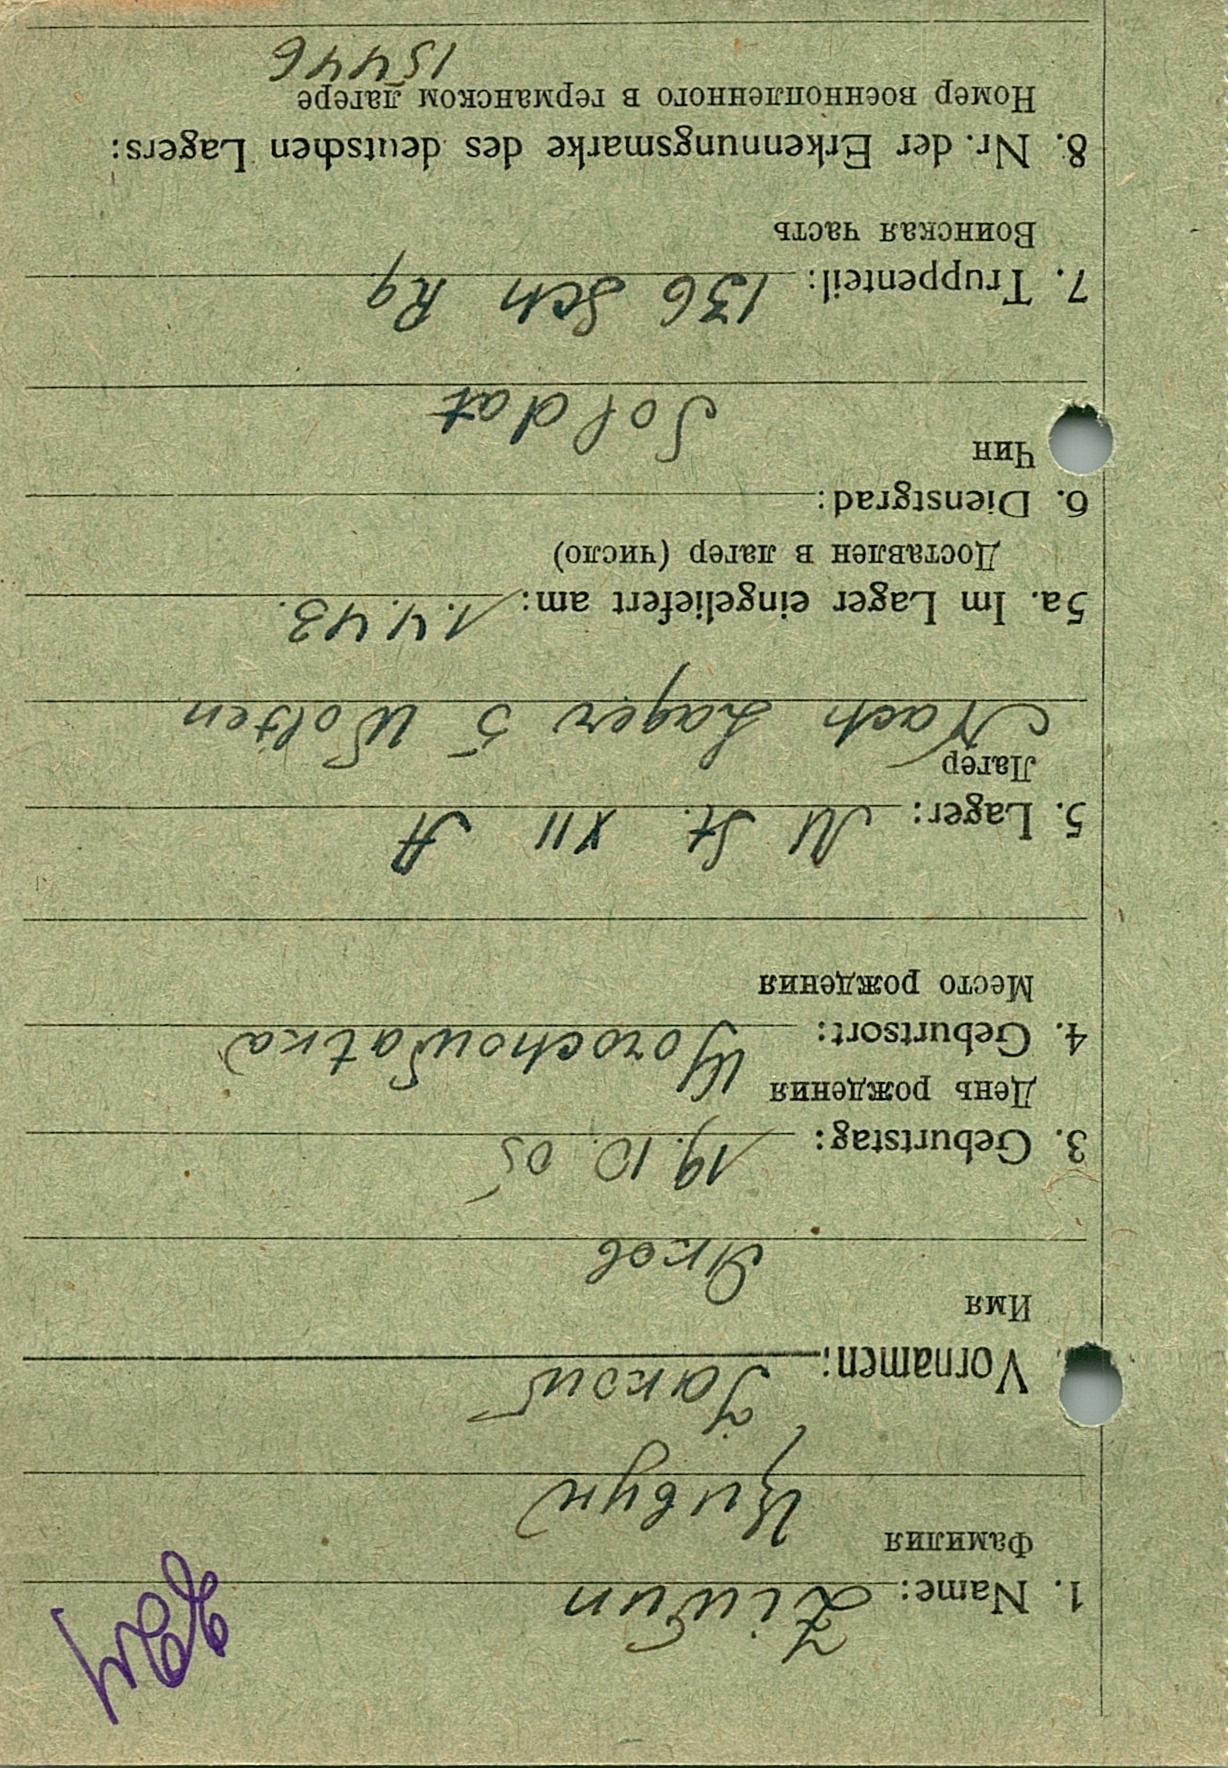 1. Name: Ziwun
Фамилия
Цивун
Vornamen: Jakow
Имя
Яков
3. Geburtstag: 19.10.05
День рождения
4. Geburtsort: Gorochowatka
Место рождения
5. Lager: M St. XII A
Лагер
Nach Lager 5
5a. Im Lager eingeliefert am: 1.4.43.
Доставлен в лагер (число)
6. Dienstgrad:
Чин
Soldat
7. Truppenteil: 136 Sch Rg
Воинская часть
8. Nr. der Erkennungsmarke des deutschen Lagers:
Номер военнопленного в германском лагере
15446